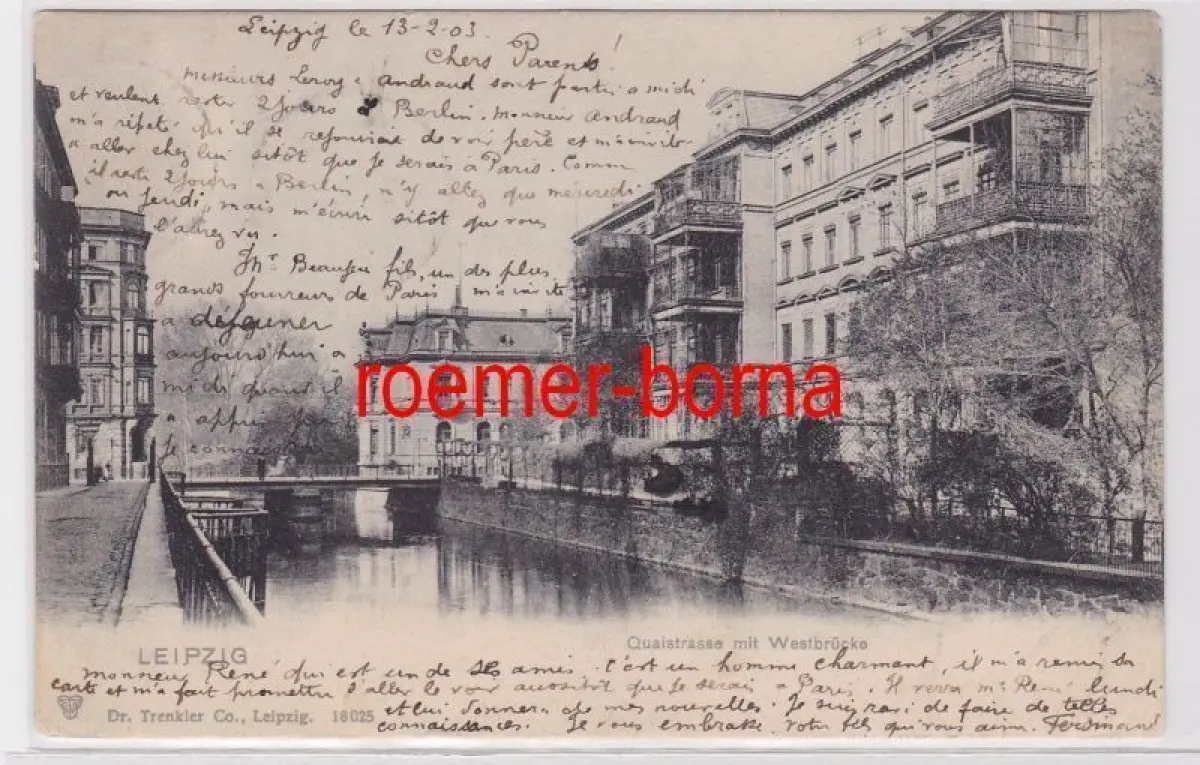 Leipzig le 13-2-03.
Chers Parents!
Messieurs Leroy & Andraud sont partis a midi
et veulent rester 2 jours a Berlin. Monsieur Andraud
m'a répété qu'il se rejouirait de voir père et m'a invité
a aller chez lui sitôt que je serais à Paris. Comm
il reste 2 jours a Berlin, n'y allez que mécredi
ou Jeudi, mais m'écrire sitôt que vous
l'aurez vu.
Mr Beaufeu fils, un des plus
grands fourreurs de Paris m'a invité
a déjeuner
aujourd'hui a
midi quand il
a appris que
je connaissais
roemer-borna
Quaistrasse mit Westbrücke
LEIPZIG
monsieur René qui est un de ses amis. C'est un homme charmant, il m'a remis sa
carte et m'a fait promettre d'aller le voir aussitôt que je serais a Paris. Il reverra Mr René lundi
et lui donnera de mes nouvelles. Je suis ravi de faire de telles
Dr. Trenkler Co., Leipzig. 18025
connaissances. Je vous embrasse. Votre fils qui vous aime. Ferdinand